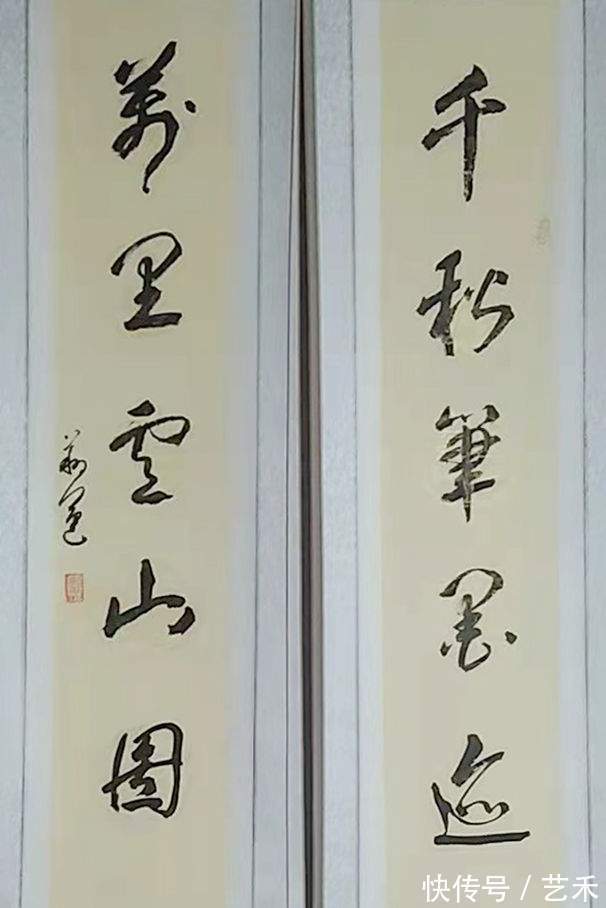 千秋筆墨迹
萬里雲山圖
快传号 / 艺禾